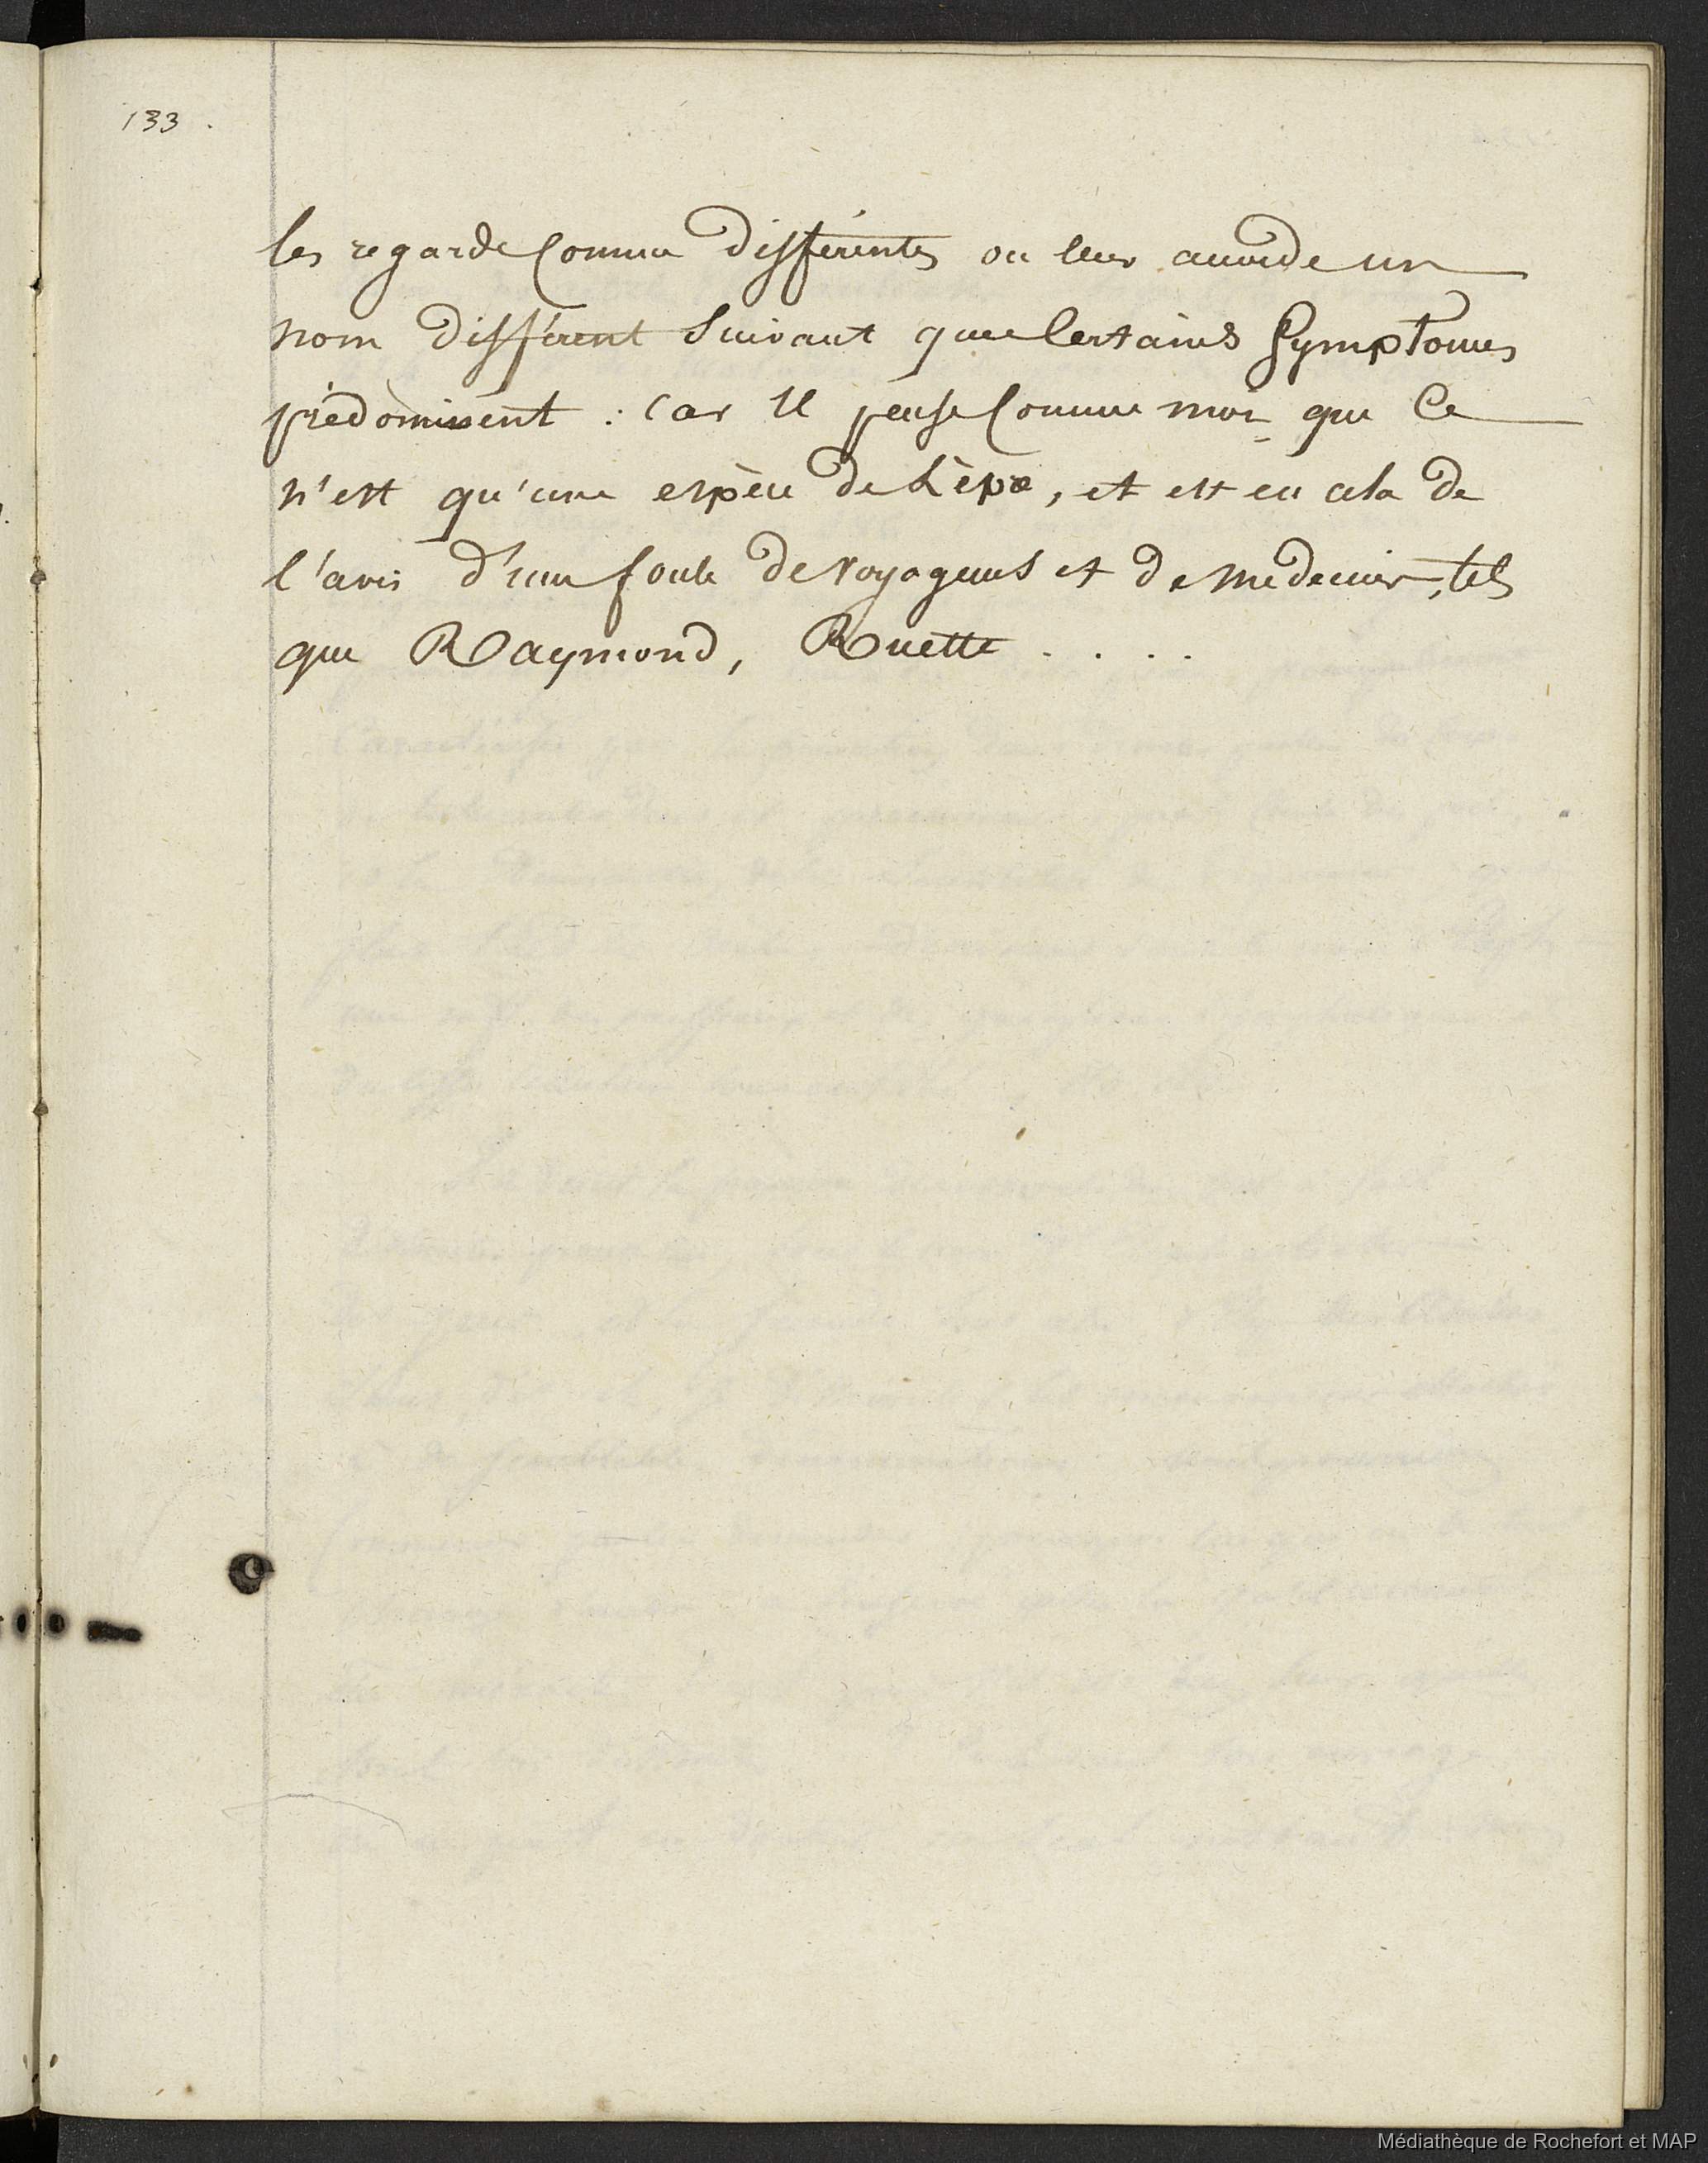 133.
les regarde comme différentes ou leur accorde un
nom différent suivant que certains symptomes
prédominent : car il pense comme moi que ce
n'est qu'une espèce de Lèpre, et est en cela de
l'avis d'une foule de voyageurs et de medecins, tels
que Raymond, Ruette . . . .
Médiathèque de Rochefort et MAP